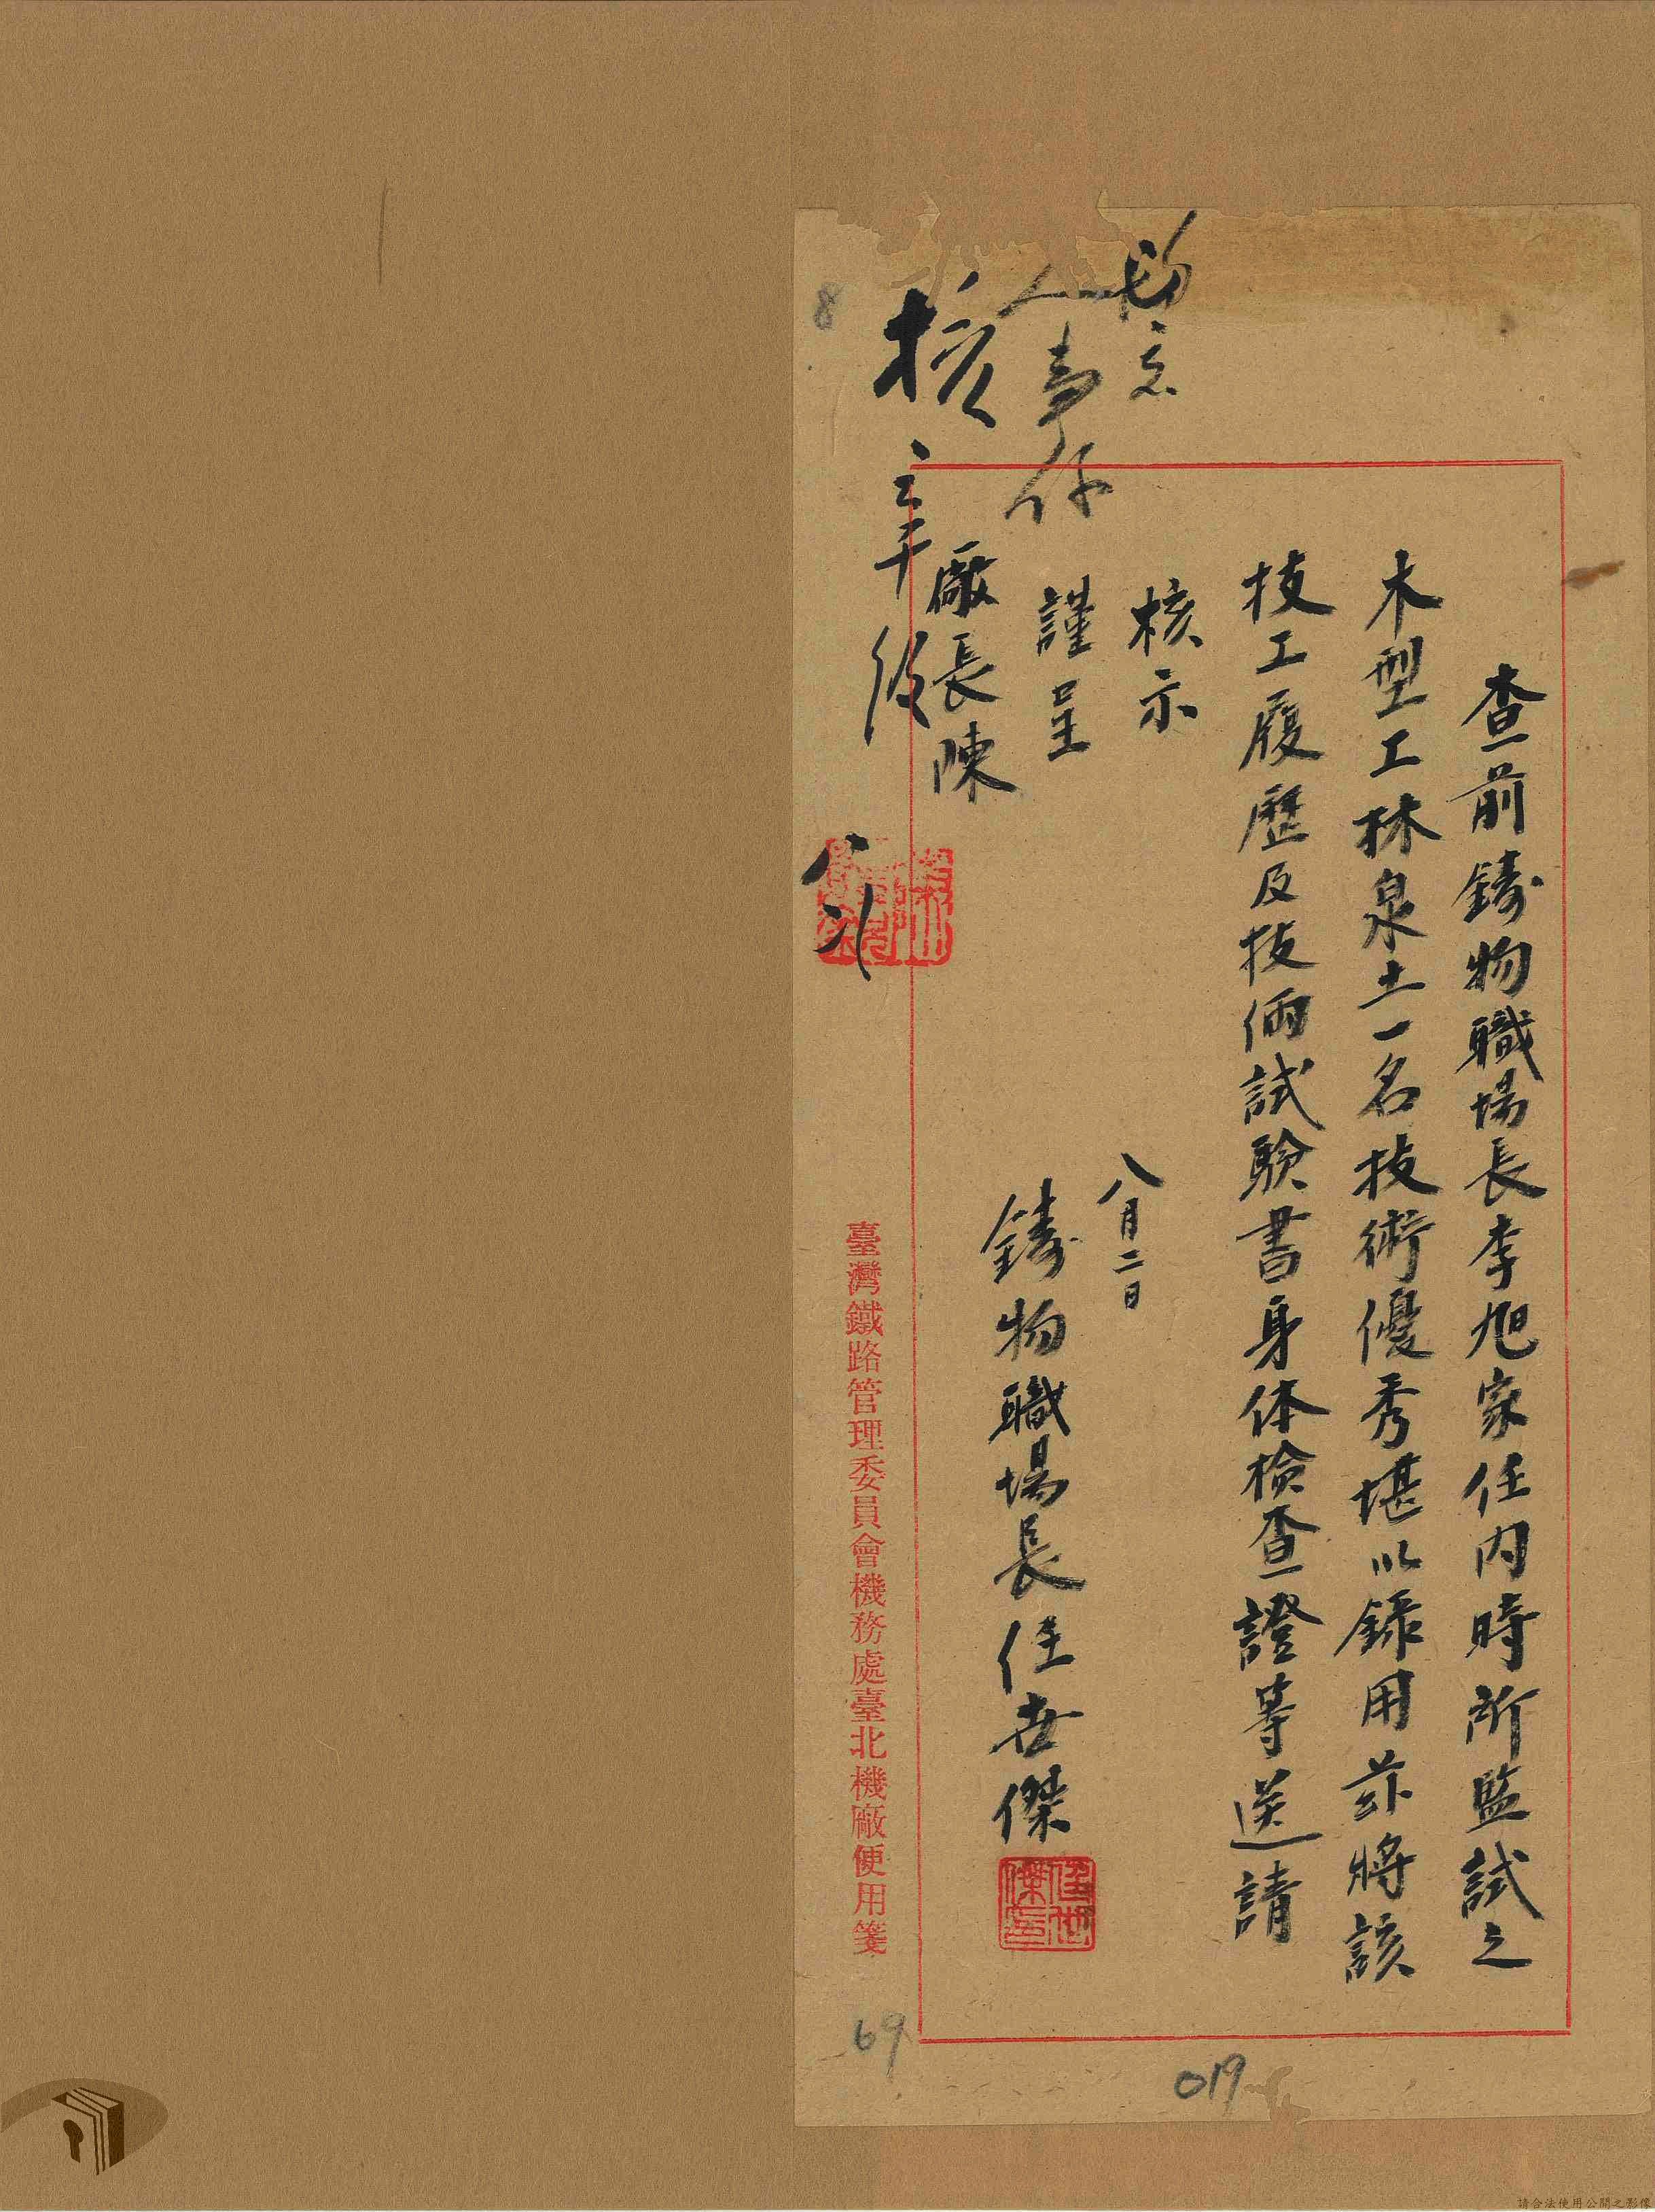 查前鑄物職場長李旭家任內時所監試之
木型工林泉土一名技術優秀堪以錄用茲將該
技工履歷及技倆試驗書身体檢查證等送請
核示
謹呈
廠長陳
八月二日
鑄物職場長任世傑
任世傑印
人事係
核
臺灣鐵路管理委員會機務處臺北機廠便用箋
8
69
019
請合法使用公開之影像